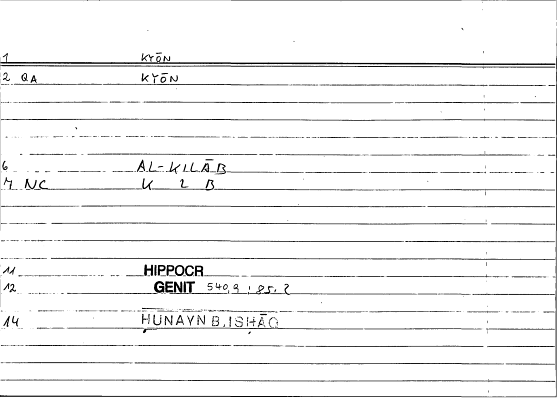 1 KYŌN
2 QA KYŌN
6 AL-KILĀB
7 NC K L B
11 HIPPOCR
12 GENIT
14 ḤUNAYN B. ISḤĀQ